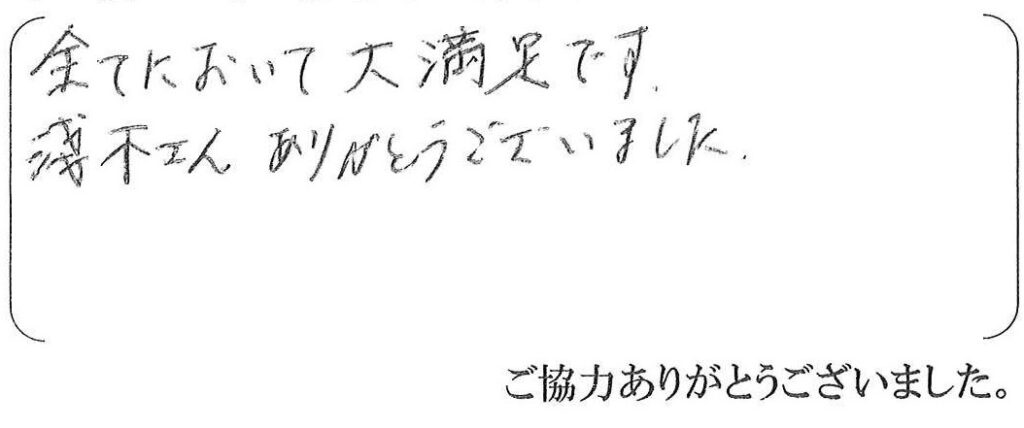 全てにおいて大満足です.
さん ありがとうございました.
ご協力ありがとうございました。